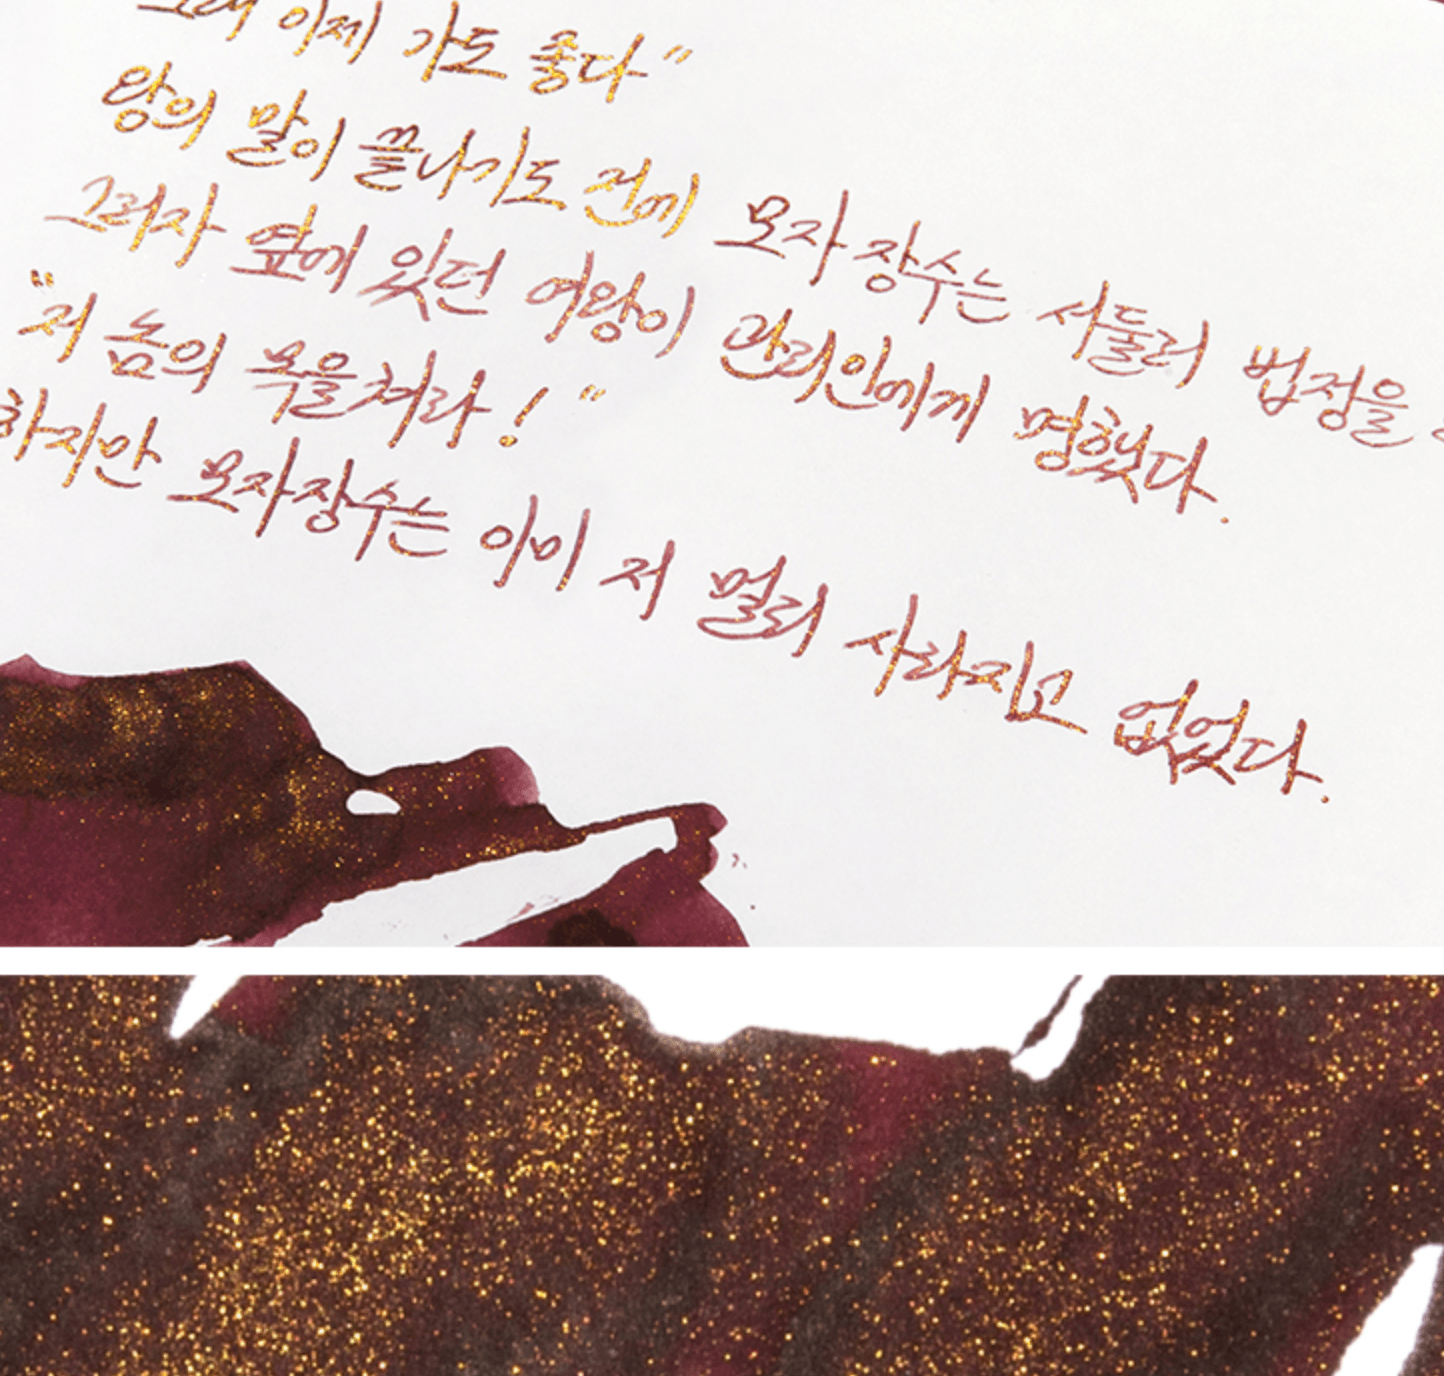 그래 이제 가도 좋다"
왕의 말이 끝나기도 전에 모자 장수는 서둘러 법정을
그러자 옆에 있던 여왕이 관리인에게 명했다.
"저 놈의 목을 쳐라!"
하지만 모자장수는 이미 저 멀리 사라지고 없었다.